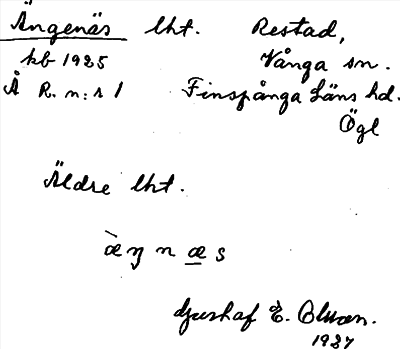 Ängenäs lht. Restad,
kb 1925 Vånga sn.
Å R. n:r 1 Finspånga Läns hd.
Ögl
Äldre lht.
æŋnæs
E.
1937